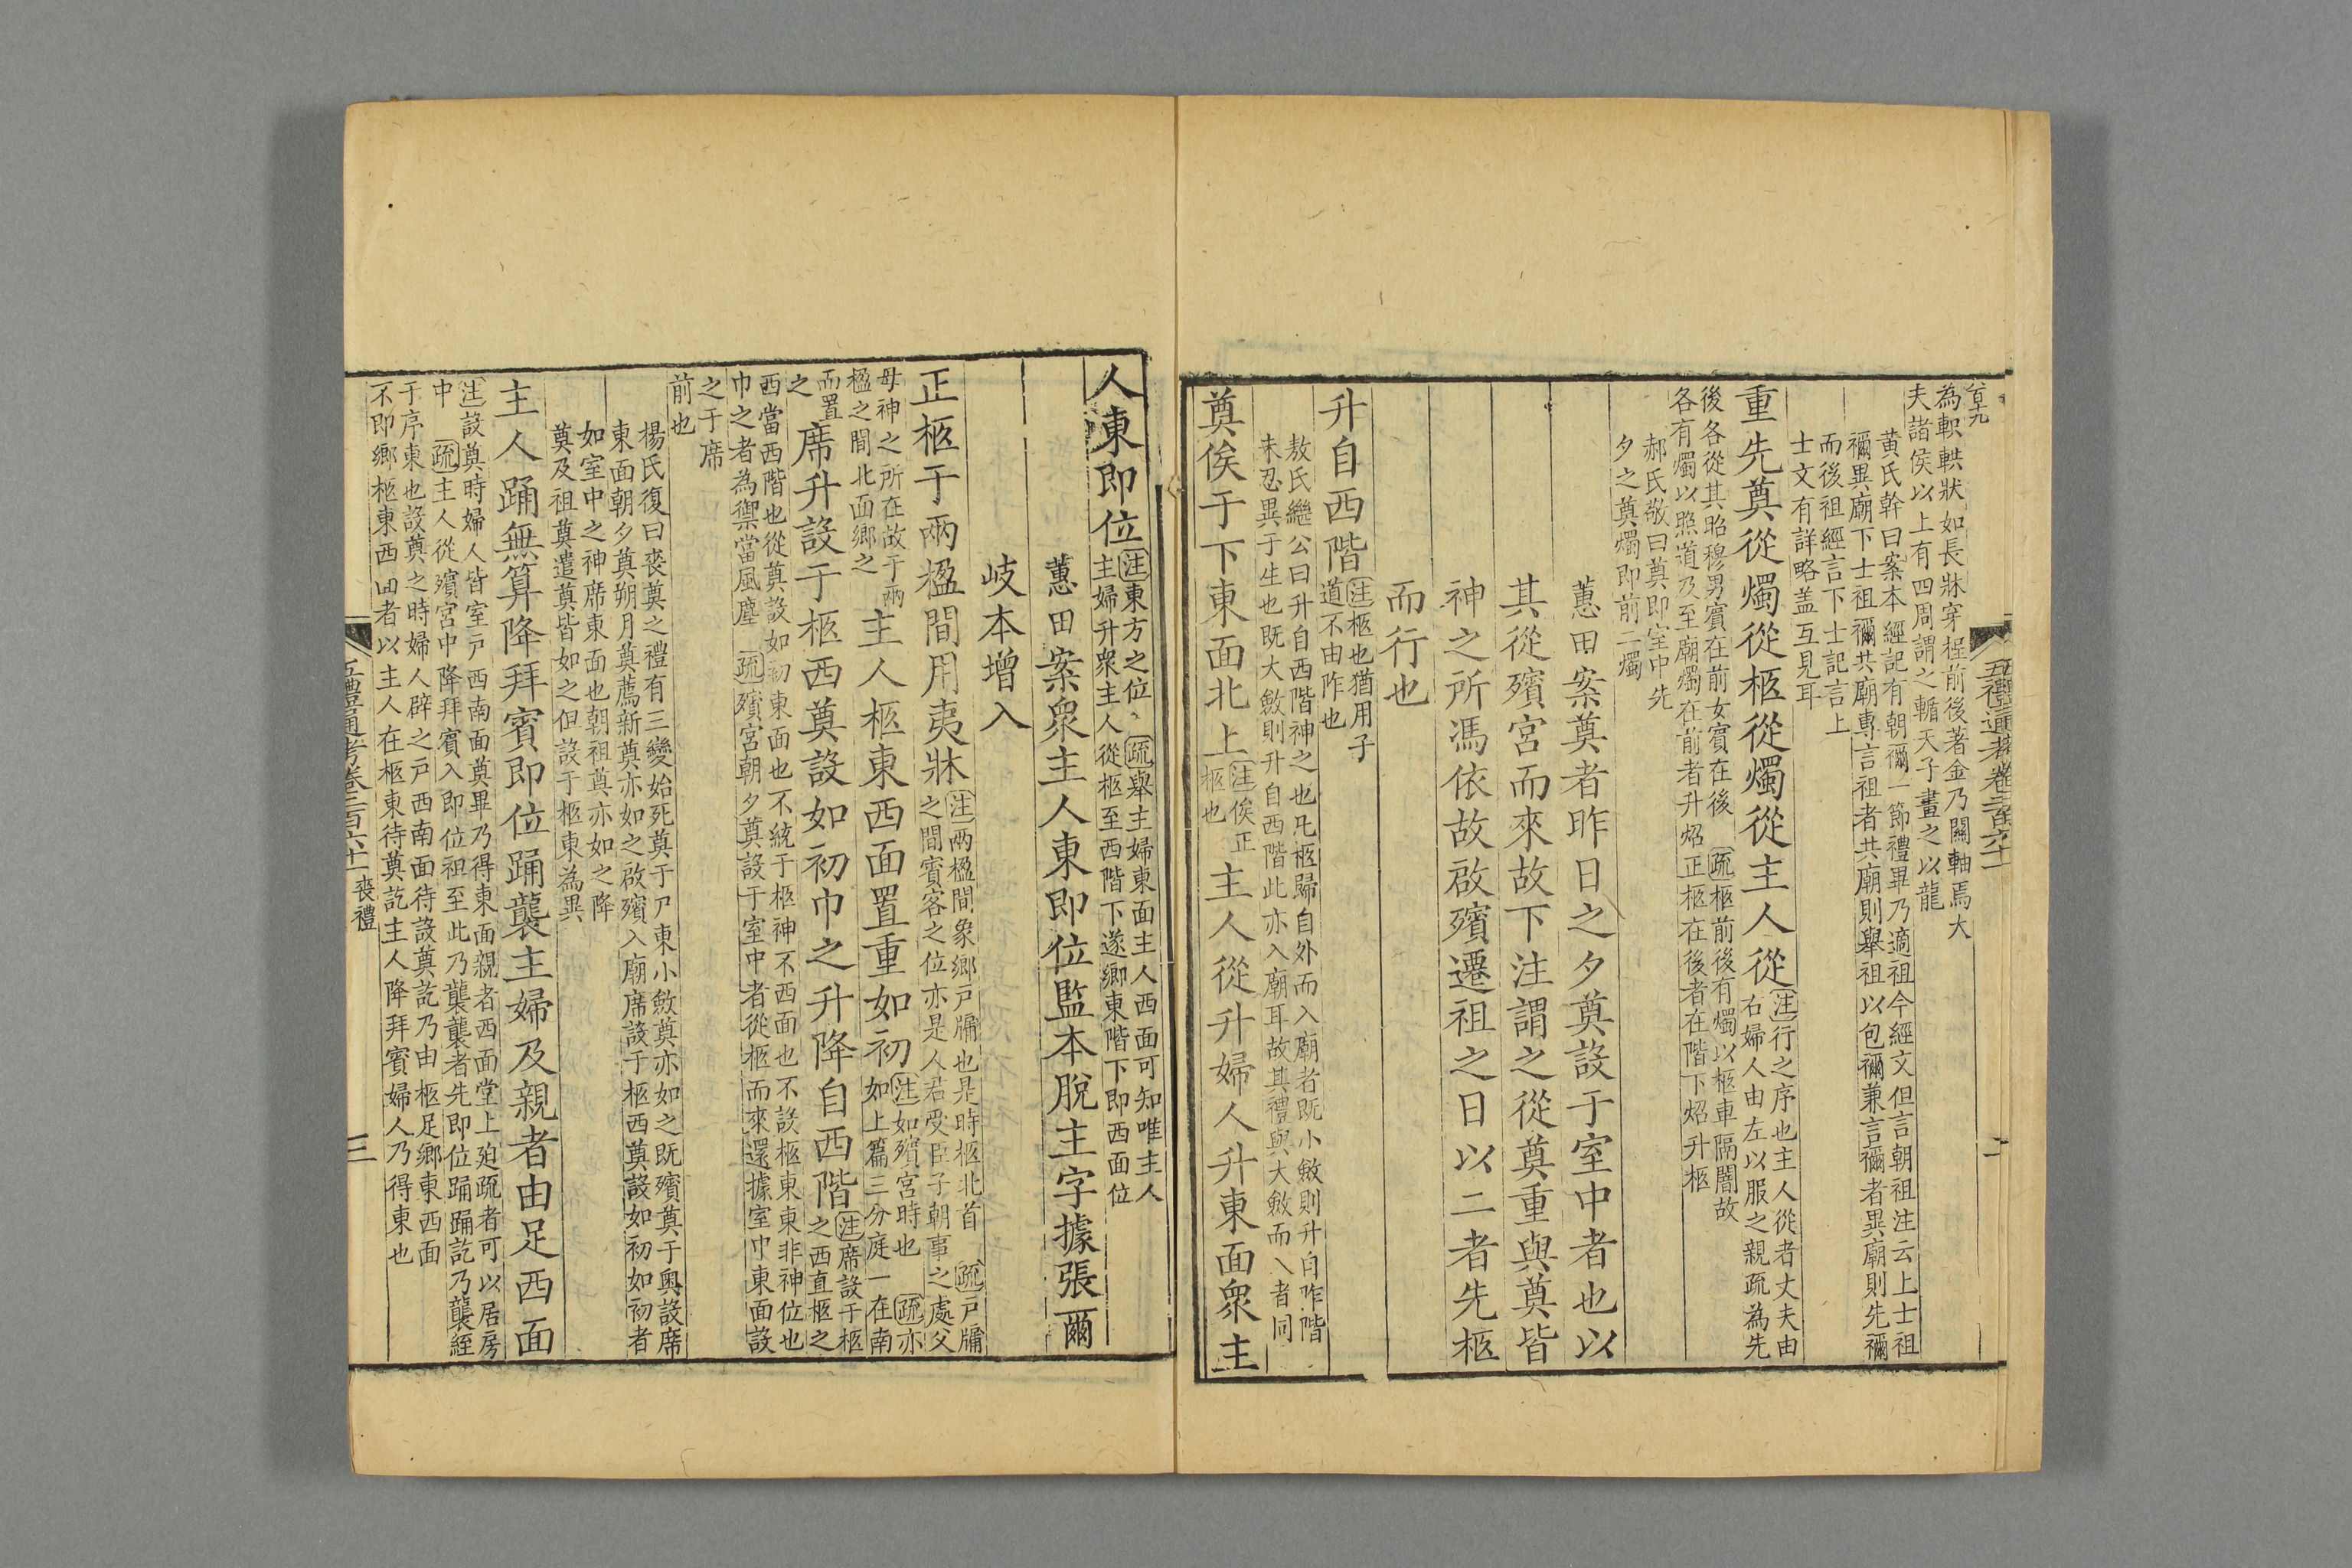 五禮通考卷二百六十一
二
為輁輁狀如長牀穿桯前後著金乃關軸焉大
夫諸侯以上有四周謂之輴天子畫之以龍
黃氏幹曰案本經記有朝禰一節禮畢乃適祖今經文但言朝祖注云上士祖
禰異廟下士祖禰共廟專言祖者共廟則舉祖以包禰兼言禰者異廟則先禰
而後祖經言下士記言上
士文有詳略蓋互見耳
重先奠從燭從柩從燭從主人從
注行之序也主人從者丈夫由
右婦人由左以服之親疏為先
後各從其昭穆男賓在前女賓在後 疏柩前後有燭以柩車隔闇故
各有燭以照道及至廟燭在前者升炤正柩在後者在階下炤升柩
郝氏敬曰奠即室中先
夕之奠燭即前二燭
蕙田案奠者昨日之夕奠設于室中者也以
其從殯宮而來故下注謂之從奠重與奠皆
神之所馮依故啟殯遷祖之日以二者先柩
而行也
升自西階
注柩也猶用子
道不由阼也
敖氏繼公曰升自西階神之也凡柩歸自外而入廟者既小斂則升自阼階
未忍異于生也既大斂則升自西階此亦入廟耳故其禮與大斂而入者同
奠俟于下東面北上
注俟正
柩也
主人從升婦人升東面眾主
人東即位
注東方之位 疏舉主婦東面主人西面可知唯主人
主婦升眾主人從柩至西階下遂鄉東階下即西面位
蕙田案眾主人東即位監本脫主字據張爾
岐本增入
正柩于兩楹間用夷牀
注兩楹間象鄉戶牖也是時柩北首 疏戶牖
之間賓客之位亦是人君受臣子朝事之處父
母神之所在故于兩
楹之間北面鄉之
主人柩東西面置重如初
注如殯宮時也 疏亦
如上篇三分庭一在南
而置
之
席升設于柩西奠設如初巾之升降自西階
注席設于柩
之西直柩之
西當西階也從奠設如初東面也不統于柩神不西面也不設柩東東非神位也
巾之者為禦當風塵 疏殯宮朝夕奠設于室中者從柩而來還據室中東面設
之于席
前也
楊氏復曰喪奠之禮有三變始死奠于尸東小斂奠亦如之既殯奠于奧設席
東面朝夕奠朔月奠薦新奠亦如之啟殯入廟席設于柩西奠設如初如初者
如室中之神席東面也朝祖奠亦如之降
奠及祖奠遣奠皆如之但設于柩東為異
主人踊無算降拜賓即位踊襲主婦及親者由足西面
注設奠時婦人皆室戶西南面奠畢乃得東面親者西面堂上迫疏者可以居房
中 疏主人從殯宮中降拜賓入即位祖至此乃襲襲者先即位踊踊訖乃襲絰
于序東也設奠之時婦人辟之戶西南面待設奠訖乃由柩足鄉東西面
不即鄉柩東西面者以主人在柩東待奠訖主人降拜賓婦人乃得東也
五禮通考卷二百六十一 喪禮
三